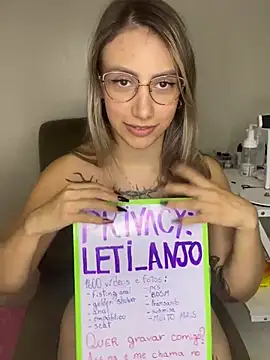 PRIVACY:
LETI_ANJO
1600 vídeos e fotos:
- fisting anal
- golden shower
- anal
- em público
- BDSM
- submissa
- MUITO MAIS
QUER gravar comigo?
me chama no